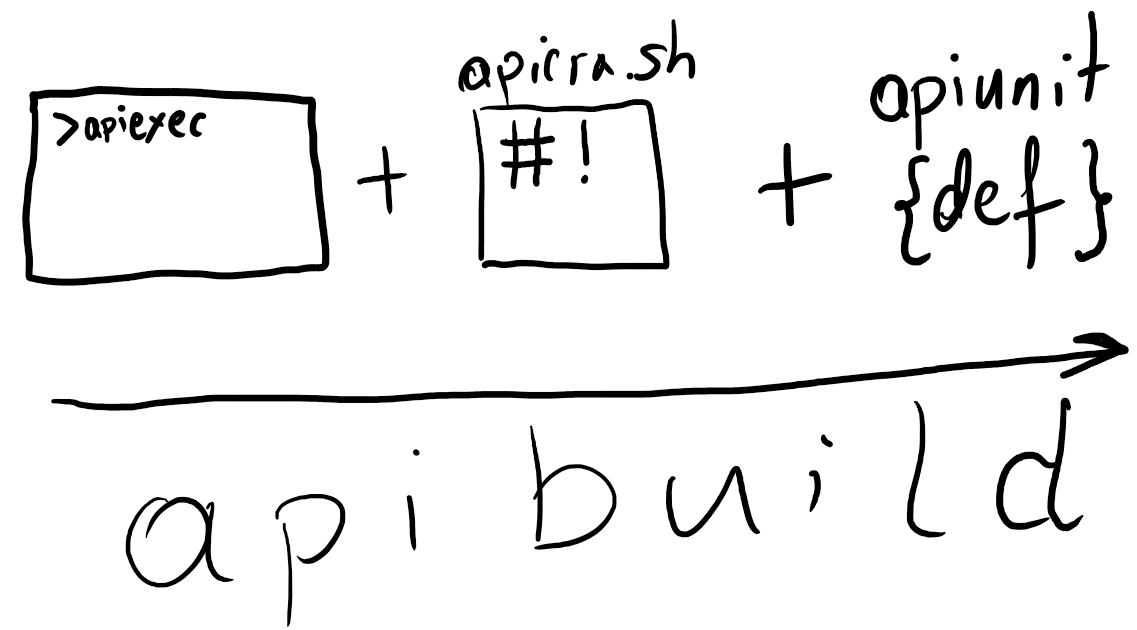 >apiexec
+
apicra.sh
#!
+
apiunit
{def}
api build